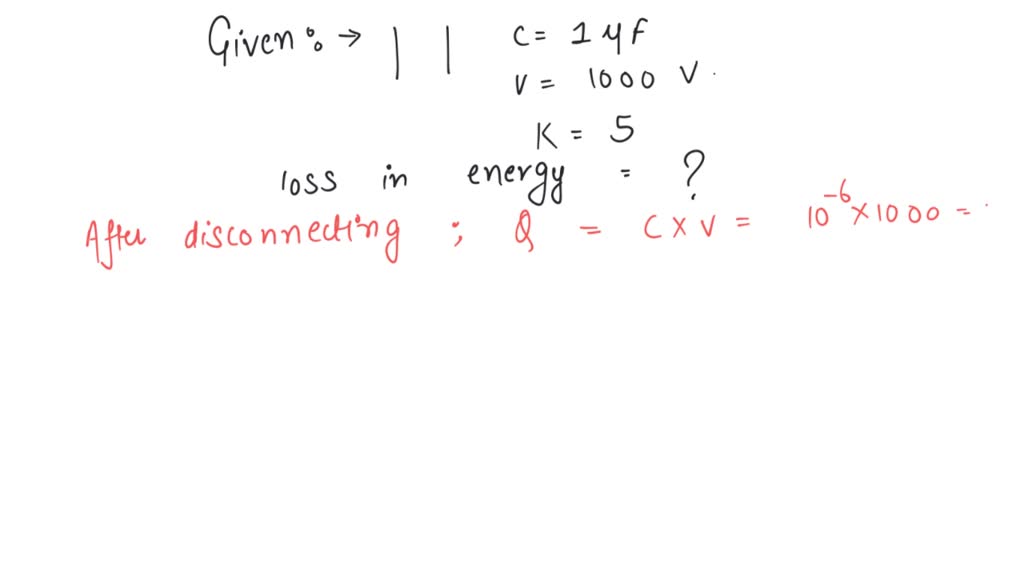 Given : → | | C = 1 μF
V = 1000 V.
K = 5
loss in energy = ?
After disconnecting ; Q = C × V = 10⁻⁶ × 1000 =